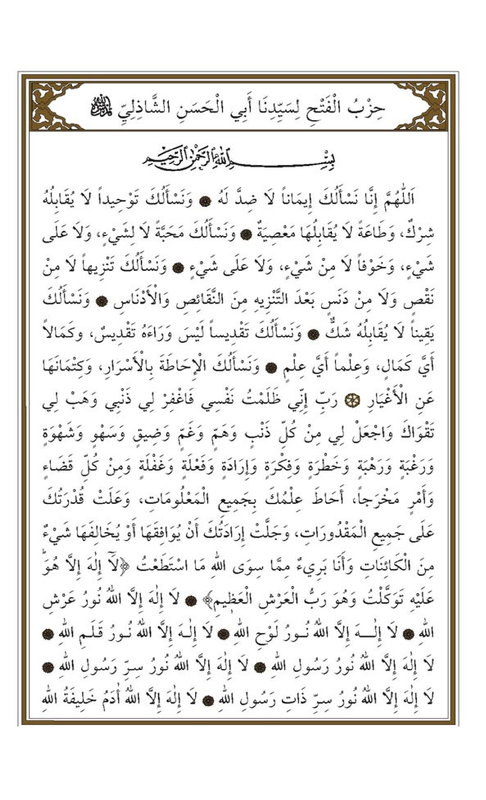 حِزْبُ الْفَتْحِ لِسَيِّدِنَا أَبِي الْحَسَنِ الشَّاذِلِيِّ
بِسْمِ اللهِ الرَّحْمٰنِ الرَّحِيمِ
اَللّٰهُمَّ إِنَّا نَسْأَلُكَ إِيمَاناً لَا ضِدَّ لَهُ ۞ وَنَسْأَلُكَ تَوْحِيداً لَا يُقَابِلُهُ
شِرْكٌ، وَطَاعَةً لَا يُقَابِلُهَا مَعْصِيَةٌ ۞ وَنَسْأَلُكَ مَحَبَّةً لَا لِشَيْءٍ، وَلَا عَلَى
شَيْءٍ، وَخَوْفاً لَا مِنْ شَيْءٍ، وَلَا عَلَى شَيْءٍ ۞ وَنَسْأَلُكَ تَنْزِيهاً لَا مِنْ
نَقْصٍ وَلَا مِنْ دَنَسٍ بَعْدَ التَّنْزِيهِ مِنَ النَّقَائِصِ وَالْأَدْنَاسِ ۞ وَنَسْأَلُكَ
يَقِيناً لَا يُقَابِلُهُ شَكٌّ ۞ وَنَسْأَلُكَ تَقْدِيساً لَيْسَ وَرَاءَهُ تَقْدِيسٌ، وَكَمَالاً
أَيَّ كَمَالٍ، وَعِلْماً أَيَّ عِلْمٍ ۞ وَنَسْأَلُكَ الْإِحَاطَةَ بِالْأَسْرَارِ، وَكِتْمَانَهَا
عَنِ الْأَغْيَارِ ۞ رَبِّ إِنِّي ظَلَمْتُ نَفْسِي فَاغْفِرْ لِي ذَنْبِي وَهَبْ لِي
تَقْوَاكَ وَاجْعَلْ لِي مِنْ كُلِّ ذَنْبٍ وَهَمٍّ وَغَمٍّ وَضِيقٍ وَسَهْوٍ وَشَهْوَةٍ
وَرَغْبَةٍ وَرَهْبَةٍ وَخَطْرَةٍ وَفِكْرَةٍ وَإِرَادَةٍ وَفَعْلَةٍ وَغَفْلَةٍ وَمِنْ كُلِّ قَضَاءٍ
وَأَمْرٍ مَخْرَجاً، أَحَاطَ عِلْمُكَ بِجَمِيعِ الْمَعْلُومَاتِ، وَعَلَتْ قُدْرَتُكَ
عَلَى جَمِيعِ الْمَقْدُورَاتِ، وَجَلَّتْ إِرَادَتُكَ أَنْ يُوَافِقَهَا أَوْ يُخَالِفَهَا شَيْءٌ
مِنَ الْكَائِنَاتِ وَأَنَا بَرِيءٌ مِمَّا سِوَى اللهِ مَا اسْتَطَعْتُ ﴿لَآ إِلٰهَ إِلَّا هُوَ
عَلَيْهِ تَوَكَّلْتُ وَهُوَ رَبُّ الْعَرْشِ الْعَظِيمِ﴾ ۞ لَا إِلٰهَ إِلَّا اللهُ نُورُ عَرْشِ
اللهِ ۞ لَا إِلٰهَ إِلَّا اللهُ نُورُ لَوْحِ اللهِ ۞ لَا إِلٰهَ إِلَّا اللهُ نُورُ قَلَمِ اللهِ ۞
لَا إِلٰهَ إِلَّا اللهُ نُورُ رَسُولِ اللهِ ۞ لَا إِلٰهَ إِلَّا اللهُ نُورُ سِرِّ رَسُولِ اللهِ ۞
لَا إِلٰهَ إِلَّا اللهُ نُورُ سِرِّ ذَاتِ رَسُولِ اللهِ ۞ لَا إِلٰهَ إِلَّا اللهُ آدَمُ خَلِيفَةُ اللهِ